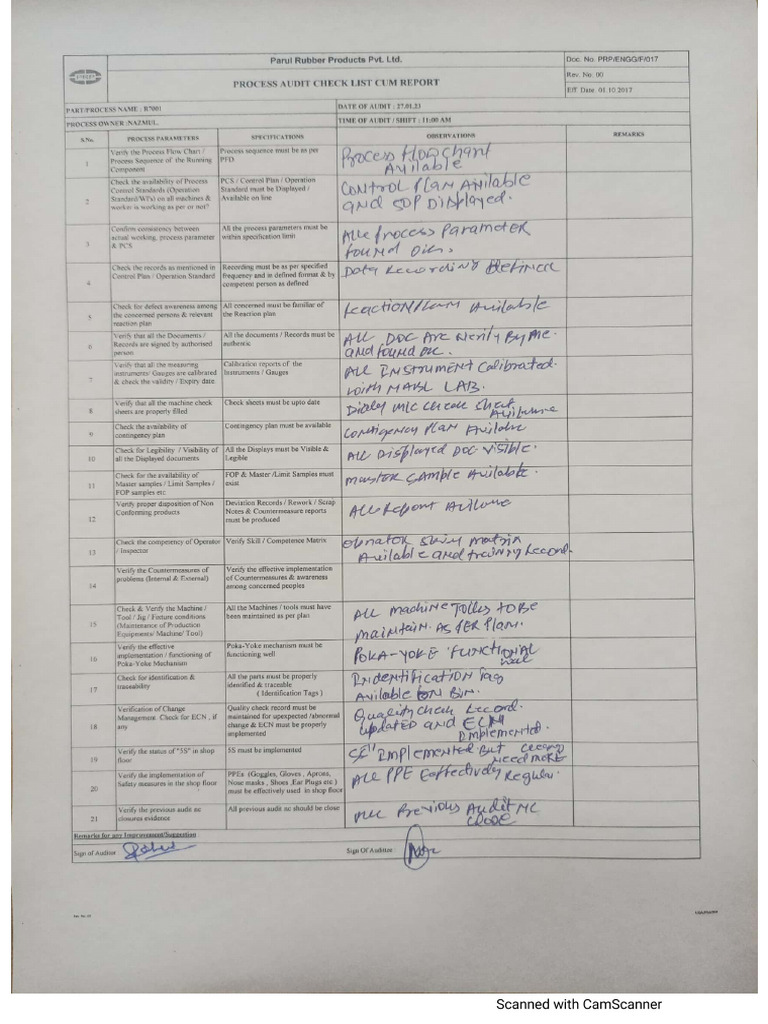 Parul Rubber Products Pvt. Ltd.
Doc. No. PRP/ENGG/F/017
PROCESS AUDIT CHECK LIST CUM REPORT
Rev. No. 00
Eff. Date. 01.10.2017
PART/PROCESS NAME : R7001
DATE OF AUDIT : 27.01.23
PROCESS OWNER :NAZMUL.
TIME OF AUDIT / SHIFT : 11:00 AM
S.No. PROCESS PARAMETERS SPECIFICATIONS OBSERVATIONS REMARKS
1
Verify the Process Flow Chart /
Process Sequence of the Running
Component
Process sequence must be as per
PFD
Process Flow chart
Avilable
2
Check the availability of Process
Control Standards (Operation
Standard/WI's) on all machines &
worker is working as per or not?
PCS / Control Plan / Operation
Standard must be Displayed /
Available on line
Control Plan Avilable
and SOP Displayed.
3
Confirm consistency between
actual working, process parameter
& PCS
All the process parameters must be
within specification limit
All Process Parameter
found
4
Check the records as mentioned in
Control Plan / Operation Standard
Recording must be as per specified
frequency and in defined format & by
competent person as defined
Data Recording Defined
5
Check for defect awareness among
the concerned persons & relevant
reaction plan
All concerned must be familiar of
the Reaction plan
Reaction Plan Avilable
6
Verify that all the Documents /
Records are signed by authorised
person
All the documents / Records must be
authentic
All Doc Are Verify By Me.
and found ok.
7
Verify that all the measuring
instruments/ Gauges are calibrated
& check the validity / Expiry date
Calibration reports of the
Instruments / Gauges
All INSTRUMENT Calibrated.
with NABL LAB.
8
Verify that all the machine check
sheets are properly filled
Check sheets must be upto date
M/c check sheet
9
Check the availability of
contingency plan
Contingency plan must be available
Contigency Plan
10
Check for Legibility / Visibility of
all the Displayed documents
All the Displays must be Visible &
Legible
All Displayed Doc Visible.
11
Check for the availability of
Master samples / Limit Samples /
FOP samples etc
FOP & Master /Limit Samples must
exist
Master Sample Avilable.
12
Verify proper disposition of Non
Conforming products
Deviation Records / Rework / Scrap
Notes & Countermeasure reports
must be produced
All Report
13
Check the competency of Operator
/ Inspector
Verify Skill / Competence Matrix
Skill matrix
Available and training Record.
14
Verify the Countermeasures of
problems (Internal & External)
Verify the effective implementation
of Countermeasures & awareness
among concerned peoples
15
Check & Verify the Machine /
Tool / Jig / Fixture conditions
(Maintenance of Production
Equipments/ Machine/ Tool)
All the Machines / tools must have
been maintained as per plan
All machine TO BE
maintain. As PER Plan.
16
Verify the effective
implementation / functioning of
Poka-Yoke Mechanism
Poka-Yoke mechanism must be
functioning well
POKA-YOKE FUNCTIONAL
well
17
Check for identification &
traceability
All the parts must be properly
identified & traceable
( Identification Tags )
Indentification Tag
Avilable on Bin.
18
Verification of Change
Management. Check for ECN , if
any
Quality check record must be
maintained for unexpected /abnormal
change & ECN must be properly
implemented
Quality Check Record.
updated and ECN
Implemented.
19
Verify the status of "5S" in shop
floor
5S must be implemented
Implemented But
Need more
20
Verify the implementation of
Safety measures in the shop floor
PPEs (Goggles, Gloves , Aprons,
Nose masks , Shoes ,Ear Plugs etc )
must be effectively used in shop floor
All PPE Effectively Regular.
21
Verify the previous audit nc
closures evidence
All previous audit nc should be close
All Previous Audit NC
close
Remarks for any Improvement/Suggestion
Sign of Auditor
Sign Of Auditee
Scanned with CamScanner